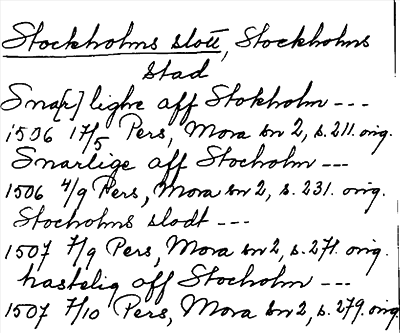 Stockholms slott, Stockholms
stad
Sna[r]lighe aff Stokholm ---
1506 17/5 Pers, Mora br 2, s. 211. orig.
Snarlige aff Stocholm ---
1506 4/9 Pers, Mora br 2, s. 231. orig.
Stocholms slodt ---
1507 7/9 Pers, Mora br 2, s. 271. orig.
hastelig aff Stocholm ---
1507 7/10 Pers, Mora br 2, s. 279. orig.